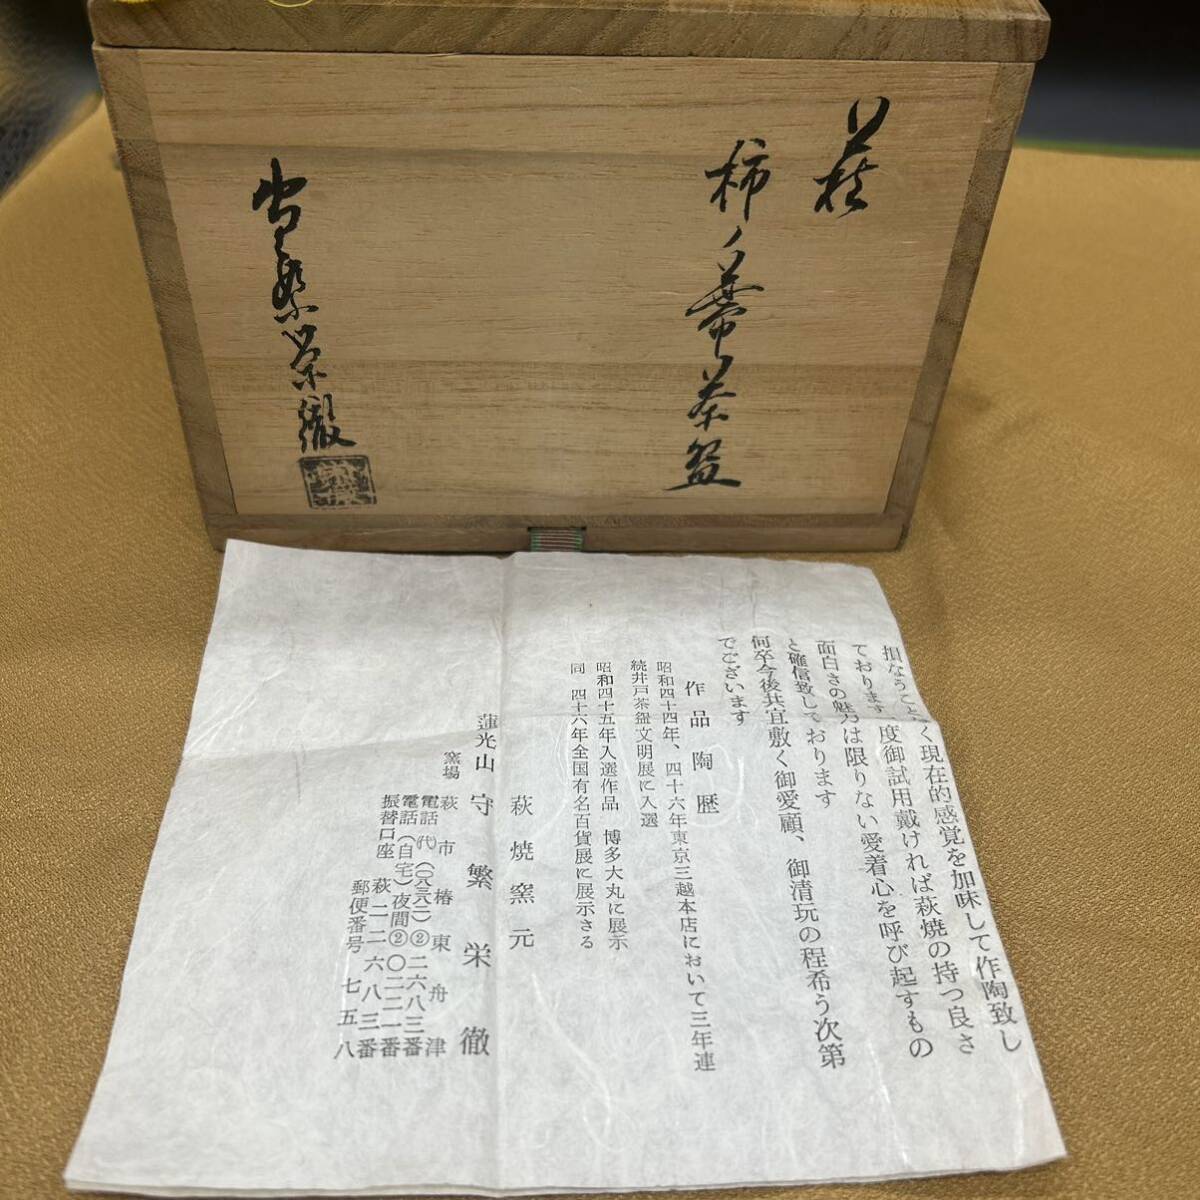 萩
柿ノ蔕茶盌
守繁栄徹
損なうことなく現在的感覚を加味して作陶致し
ております 度御試用戴ければ萩焼の持つ良さ
面白さの魅力は限りない愛着心を呼び起すもの
と確信致しております
何卒今後共宜敷く御愛顧、御清玩の程希う次第
でございます
作品陶歴
昭和四十四年、四十六年東京三越本店において三年連
続井戸茶盌文明展に入選
昭和四十五年入選作品 博多大丸に展示
同 四十六年全国有名百貨展に展示さる
萩焼窯元
蓮光山 守繁栄徹
窯場 萩市椿東舟津
電話(代)(〇八三八二)②二六八三番
電話(自宅)夜間②〇二二一番
振替口座 萩二二六八三番
郵便番号 七五八